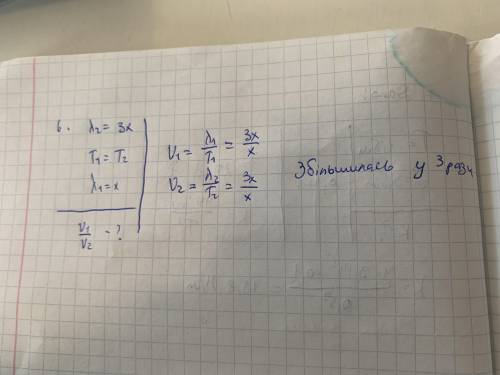 6. λ₂ = 3x
T₁ = T₂
λ₁ = x
V₁/V₂ - ?
V₁ = λ₁/T₁ = 3x/x
V₂ = λ₂/T₂ = 3x/x
Збільшилась у 3 рази